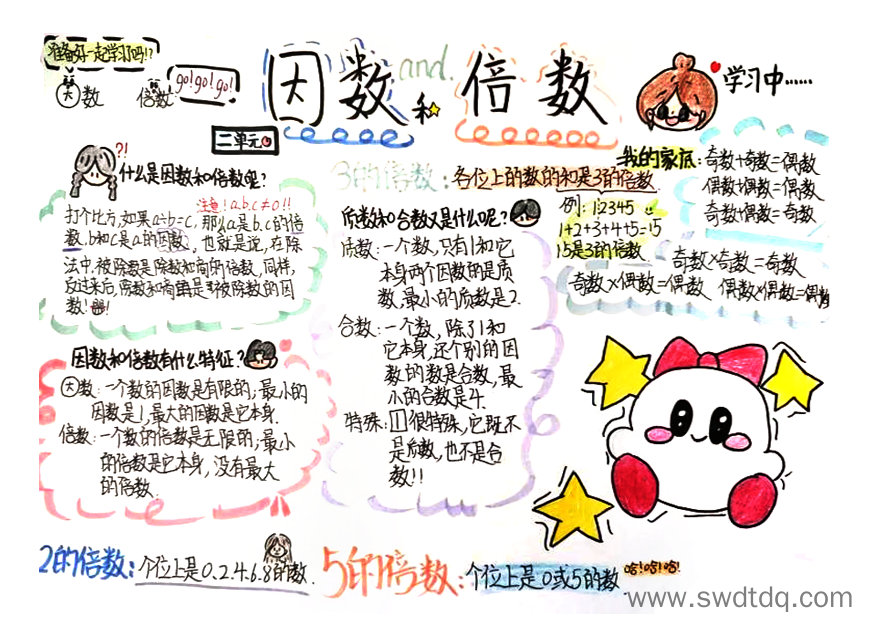 准备好一起学习了吗!?
因数
倍数
go!go!go!
因数 and 和 倍数
学习中……
二单元
?!
什么是因数和倍数呢?
注意!a.b.c≠0!!
打个比方,如果a÷b=c,那么a是b.c的倍
数,b和c是a的因数,也就是说,在除
法中,被除数是除数和商的倍数,同样,
反过来后,除数和商是被除数的因
数!
因数和倍数有什么特征?
因数:一个数的因数是有限的,最小的
因数是1,最大的因数是它本身.
倍数:一个数的倍数是无限的,最小
的倍数是它本身,没有最大
的倍数.
3的倍数:各位上的数的和是3的倍数
例:12345
1+2+3+4+5=15
15是3的倍数
质数和合数又是什么呢?
质数:一个数,只有1和它
本身两个因数的是质
数,最小的质数是2.
合数:一个数,除了1和
它本身,还个别的因
数的数是合数,最
小的合数是4.
特殊:1很特殊,它既不
是质数,也不是合
数!!
我的家底:奇数+奇数=偶数
偶数+偶数=偶数
奇数+偶数=奇数
奇数×奇数=奇数
奇数×偶数=偶数 偶数×偶数=偶数
2的倍数:个位上是0.2.4.6.8的数.
5的倍数:个位上是0或5的数
哈!哈!哈!
www.swdtdq.com